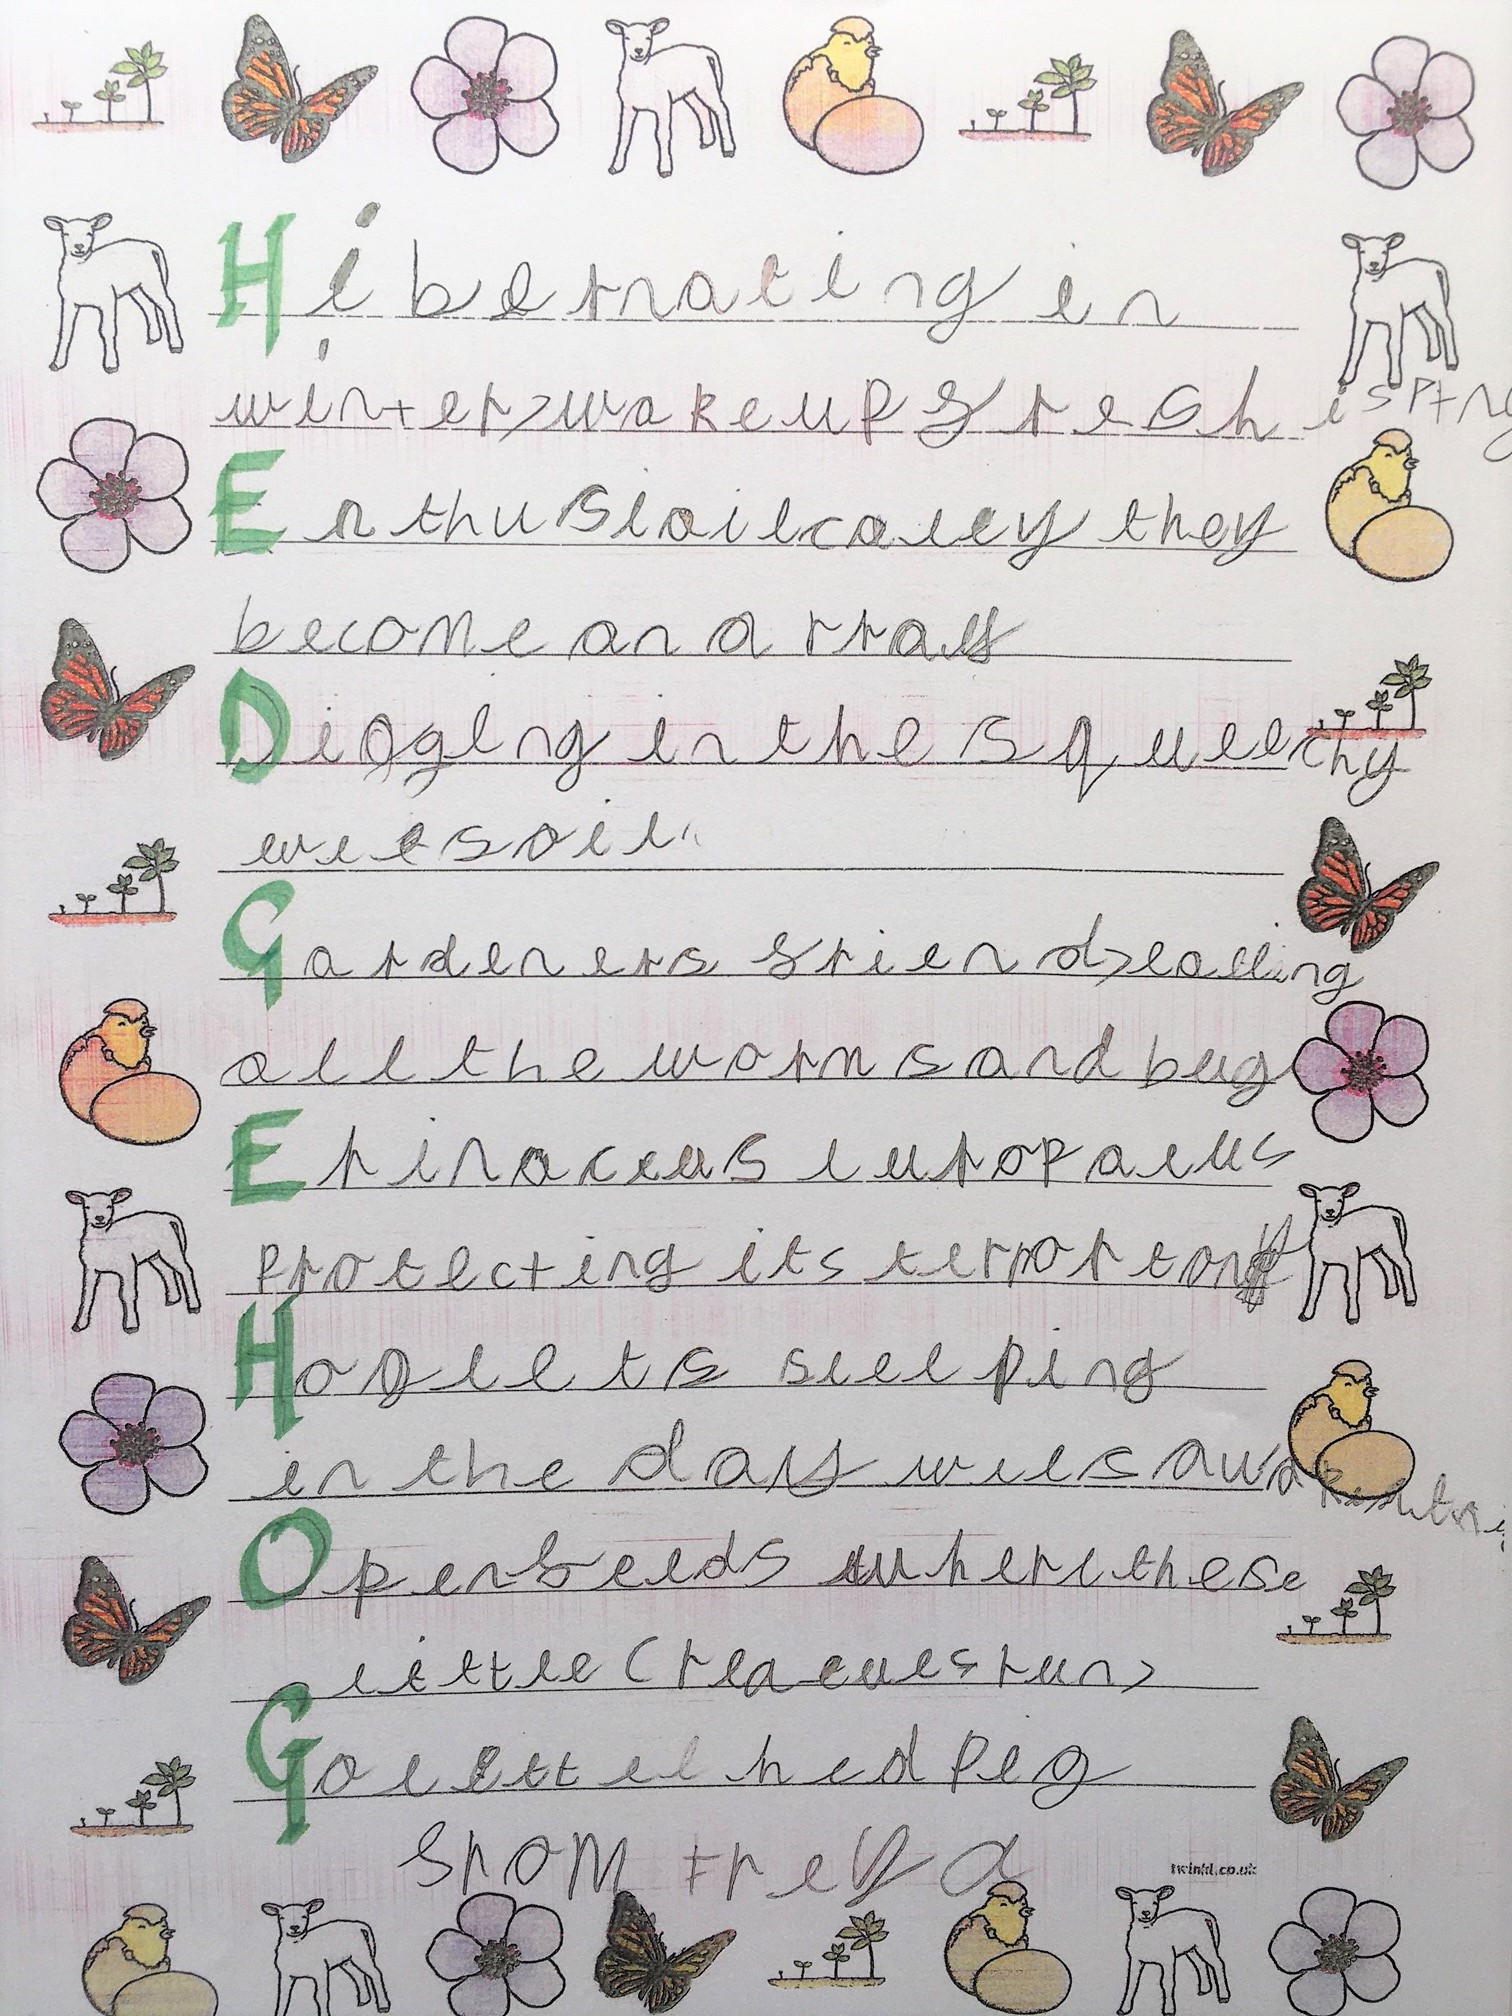 Hibernating in
winter, wake up fresh i spring
Enthusiaticaley they
become an array
Digging in the squeechy
wet soil
Gardeners friend, eating
all the worms and bug
Erinaceus europaeus
Protecting its
Hoglets sleeping
in the day
Open beeds where these
little creatuers run,
Go littel hedpig
from Freya
twinkl.co.uk